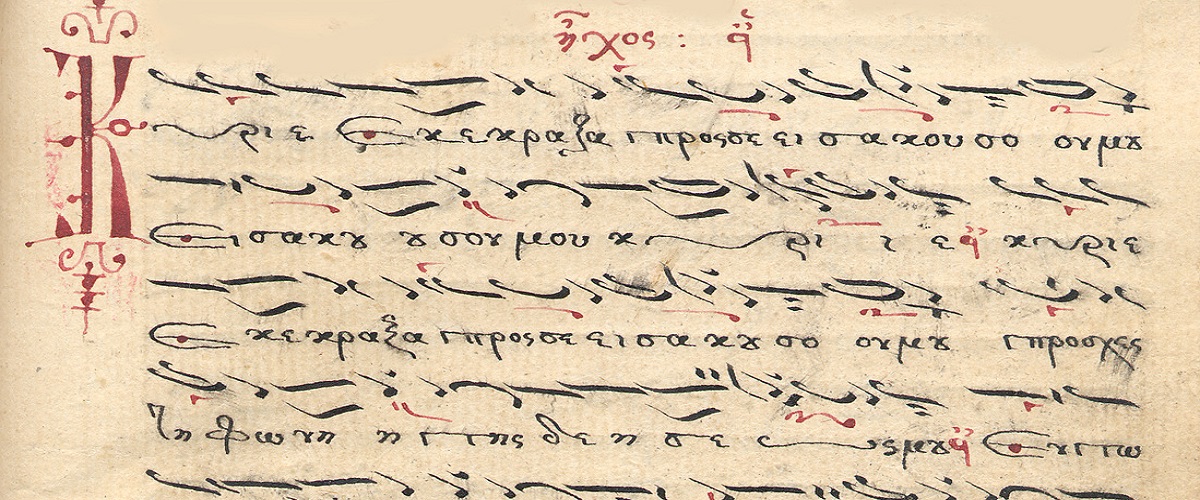 ἦχος : ᾱ
Κύριε εκεκραξα προςσε εισακουσο ουμου
Εισακου ουσουμου κυ ρι ι ε κυριε
Εκεκραξα προςσε εισακουσο ουμου προσχες
τη φωνη η της δε η σε ε ωςμου Εν τω